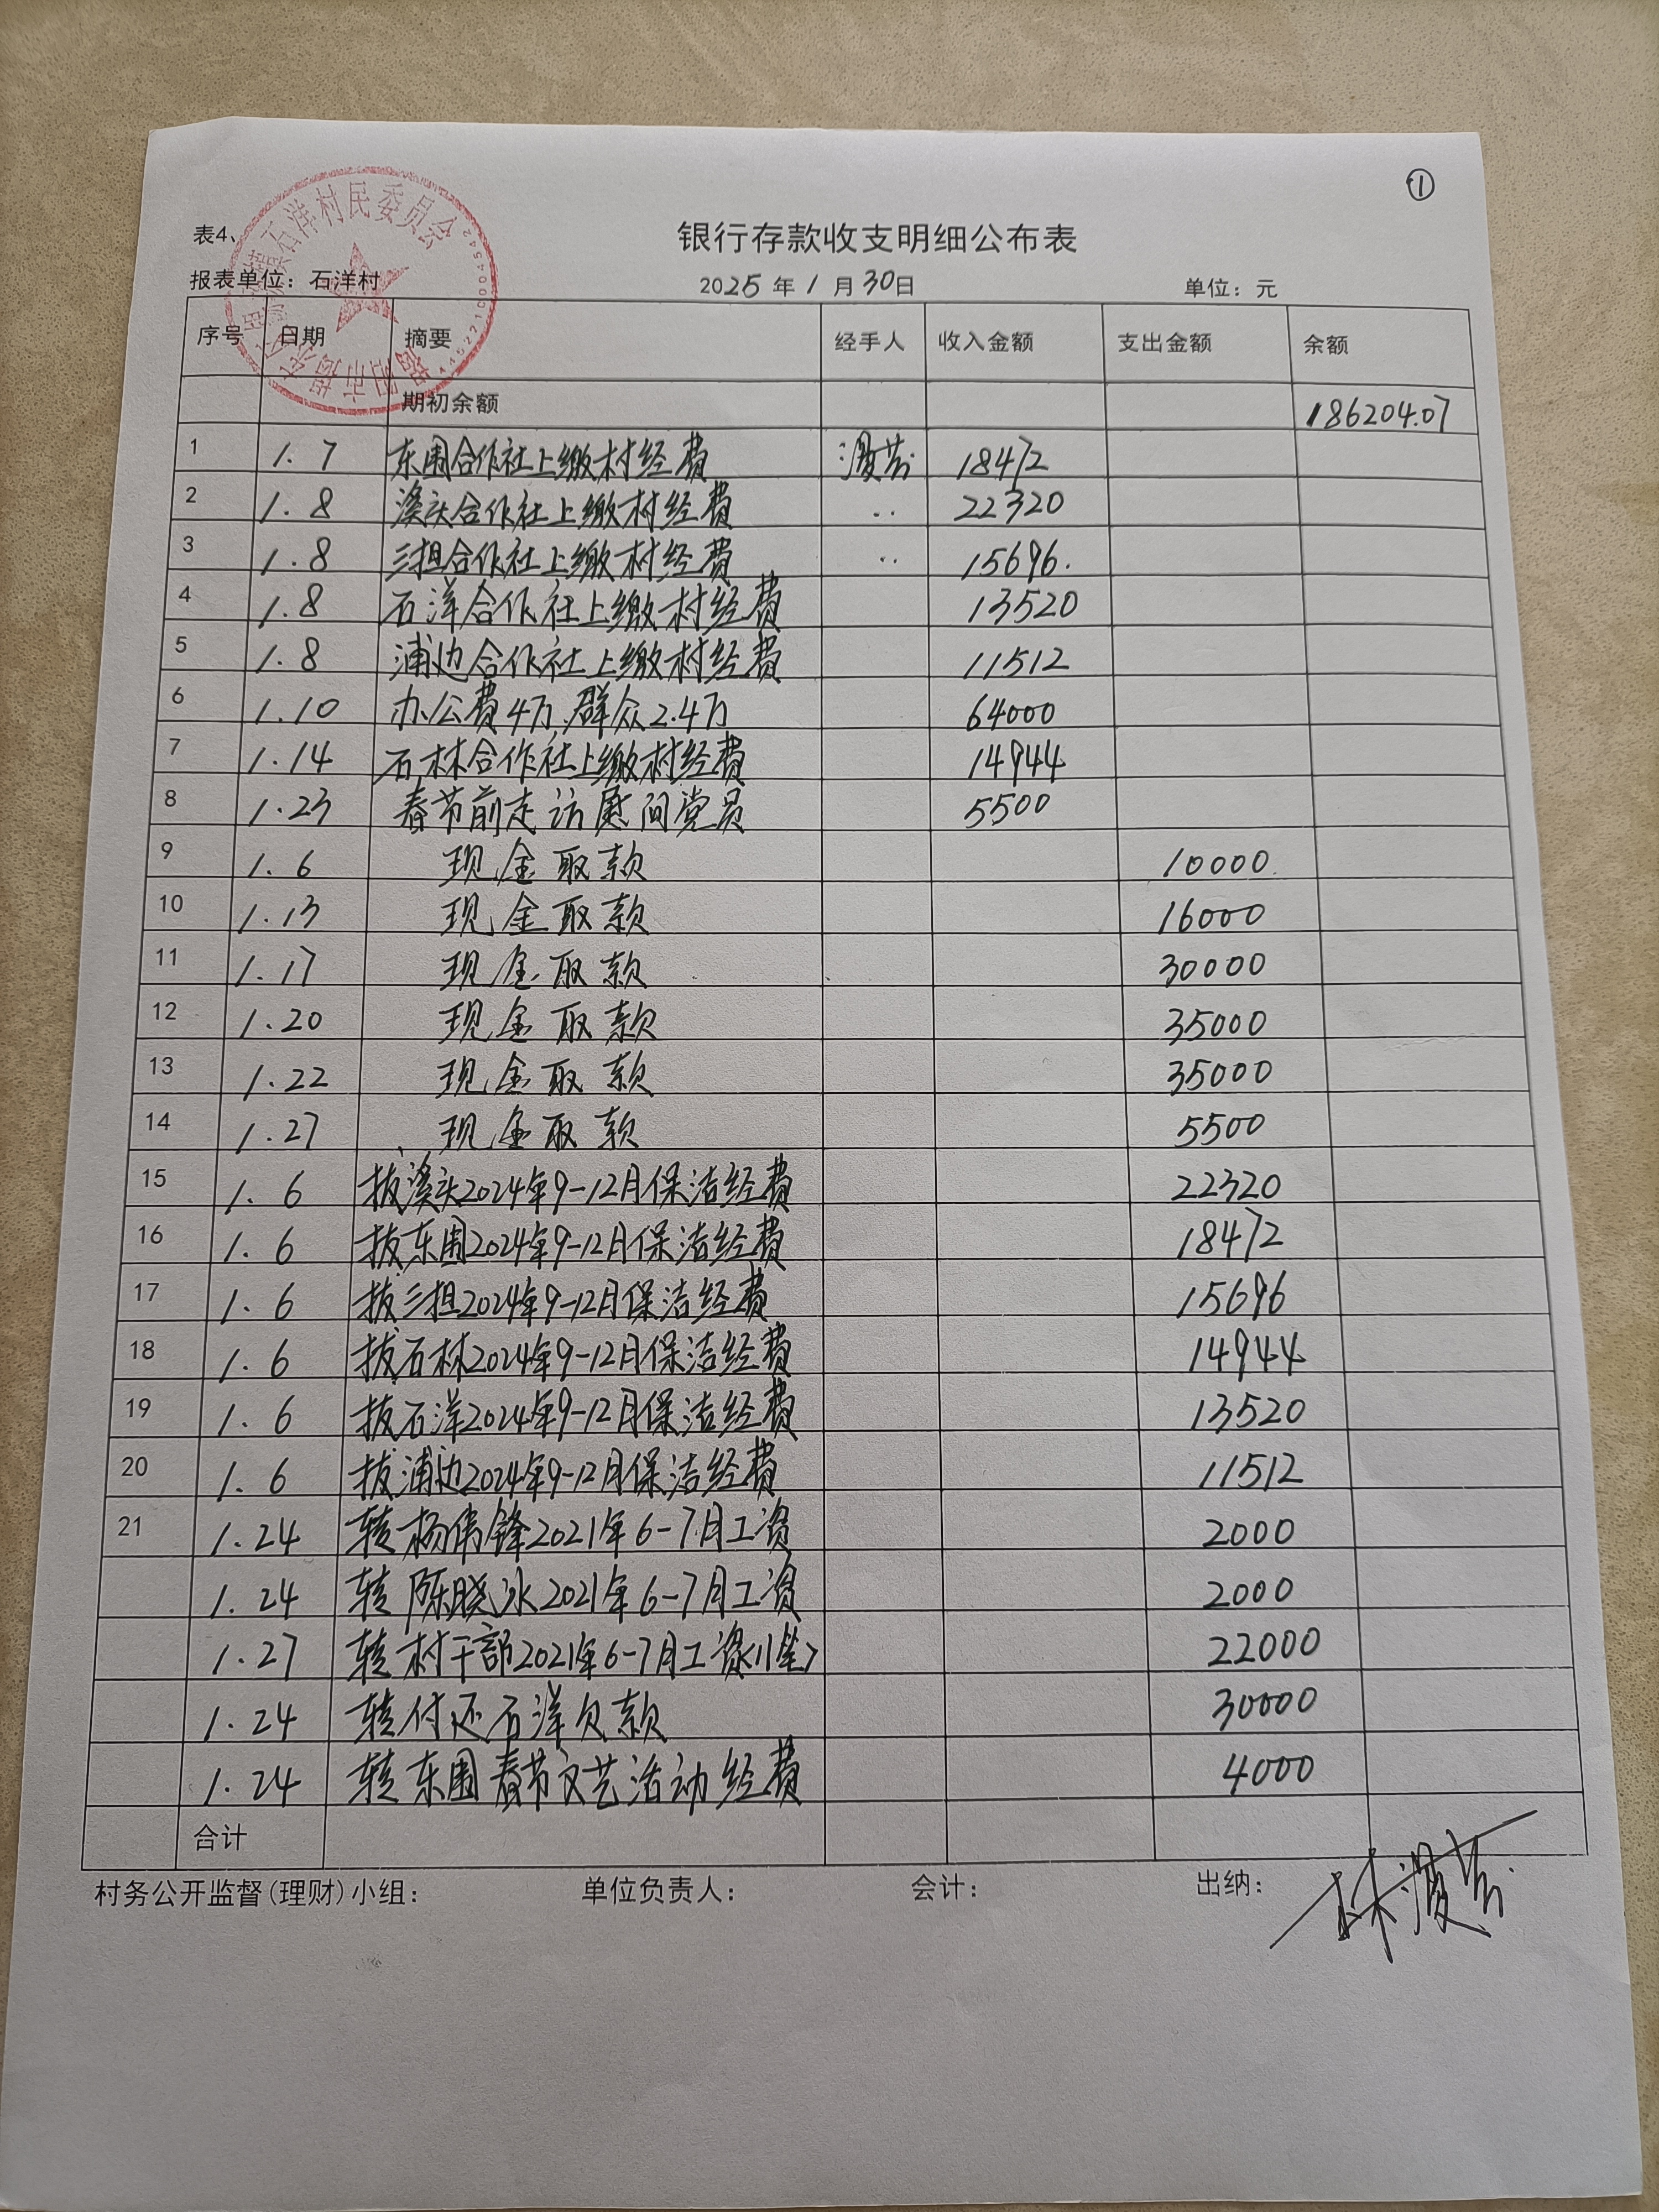 ①
表4、
银行存款收支明细公布表
报表单位：石洋村 2025年1月30日 单位：元
序号 日期 摘要 经手人 收入金额 支出金额 余额
期初余额 186204.07
1 1.7 东围合作社上缴村经费 18472
2 1.8 溪头合作社上缴村经费 .. 22320
3 1.8 三担合作社上缴村经费 .. 15696.
4 1.8 石洋合作社上缴村经费 13520
5 1.8 浦边合作社上缴村经费 11512
6 1.10 办公费4万,群众2.4万 64000
7 1.14 石林合作社上缴村经费 14944
8 1.23 春节前走访慰问党员 5500
9 1.6 现金取款 10000
10 1.13 现金取款 16000
11 1.17 现金取款 30000
12 1.20 现金取款 35000
13 1.22 现金取款 35000
14 1.27 现金取款 5500
15 1.6 拨溪头2024年9-12月保洁经费 22320
16 1.6 拨东围2024年9-12月保洁经费 18472
17 1.6 拨三担2024年9-12月保洁经费 15696
18 1.6 拨石林2024年9-12月保洁经费 14944
19 1.6 拨石洋2024年9-12月保洁经费 13520
20 1.6 拨浦边2024年9-12月保洁经费 11512
21 1.24 转杨伟锋2021年6-7月工资 2000
1.24 转陈晓冰2021年6-7月工资 2000
1.27 转村干部2021年6-7月工资(11笔) 22000
1.24 转付还石洋欠款 30000
1.24 转东围春节文艺活动经费 4000
合计
村务公开监督(理财)小组： 单位负责人： 会计： 出纳：
石洋村民委员会